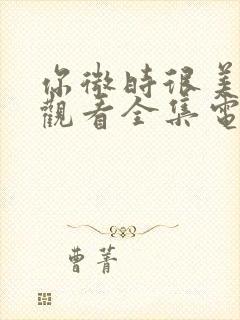 你微時很美
觀看全集電
曹菁